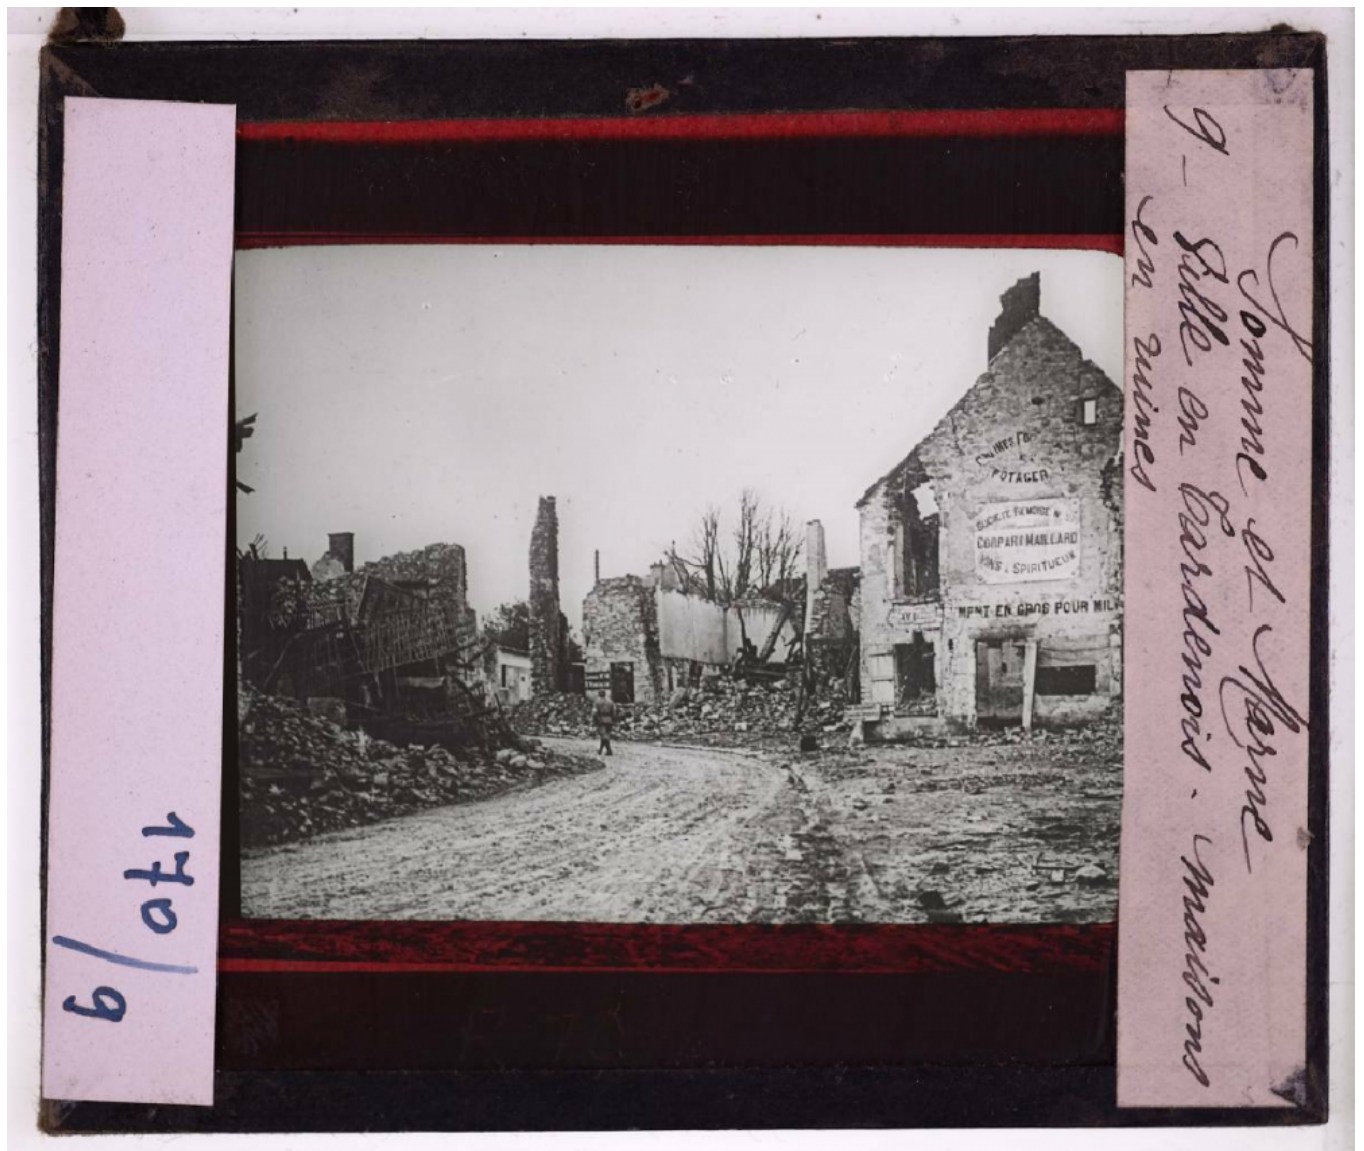 Somme et Marne
9 - Ville en Tardenois - maisons
en ruines
170/9
POTAGER
MAILLARD
VINS & SPIRITUEUX
MENT EN GROS POUR MIL